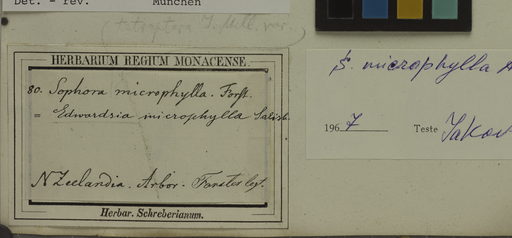 Det. – rev. München
(tetraptera J. Mill. var.)
HERBARIUM REGIUM MONACENSE.
80. Sophora microphylla. Forst.
= Edwardsia microphylla Salisb.
N Zeelandia. Arbor. Forster legt.
Herbar. Schreberianum.
S. microphylla
1967 Teste